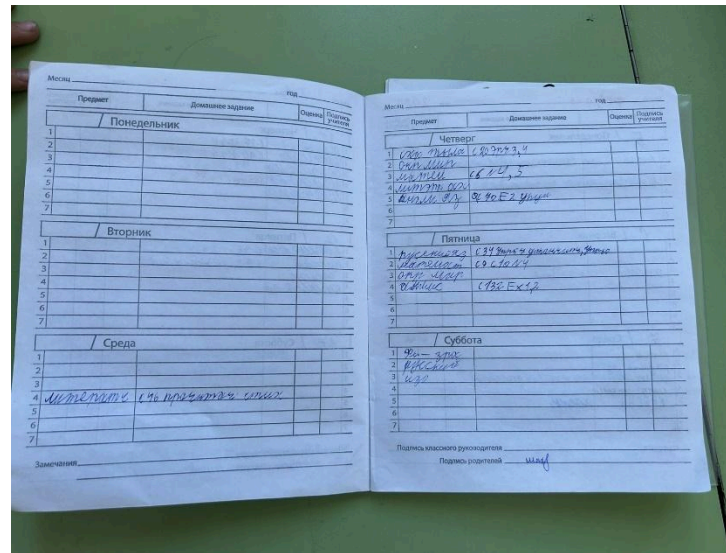 Месяц год
Предмет Домашнее задание Оценка Подпись учителя
/ Понедельник
1
2
3
4
5
6
7
/ Вторник
1
2
3
4
5
6
7
/ Среда
1
2
3
4 литерату с 46 прочитат стих
5
6
7
Замечания
Месяц год
Предмет Домашнее задание Оценка Подпись учителя
/ Четверг
1
2 окр мир
3 матем с6 N4, 5
4
5
6
7
/ Пятница
1 русский яз с 34
2 математ с9 с10 N4
3 окр мир
4 с 132 Ex 1,2
5
6
7
/ Суббота
1 Физ-
2 русский
3 изо
4
5
6
7
Подпись классного руководителя
Подпись родителей